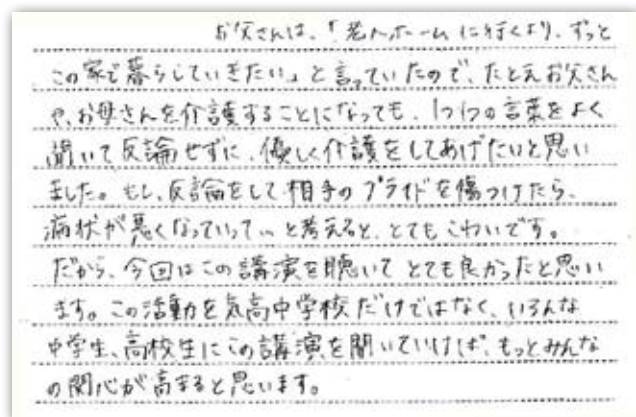 お父さんは、「老人ホームに行くより、ずっと
この家で暮らしていきたい」と言っていたので、たとえお父さん
や、お母さんを介護することになっても、1つ1つの言葉をよく
聞いて反論せずに、優しく介護をしてあげたいと思い
ました。もし、反論をして相手のプライドを傷つけたら、
病状が悪くなっていって…と考えると、とてもこわいです。
だから、今回はこの講演を聴いてとても良かったと思い
ます。この活動を気高中学校だけではなく、いろんな
中学生、高校生にこの講演を開いていけば、もっとみんな
の関心が高まると思います。